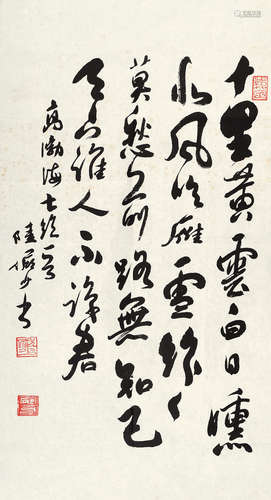 十里黃雲白日曛
北風吹雁雪紛々
莫愁前路無知己
天下誰人不識君
高渤海七絕一首
陸儼少書